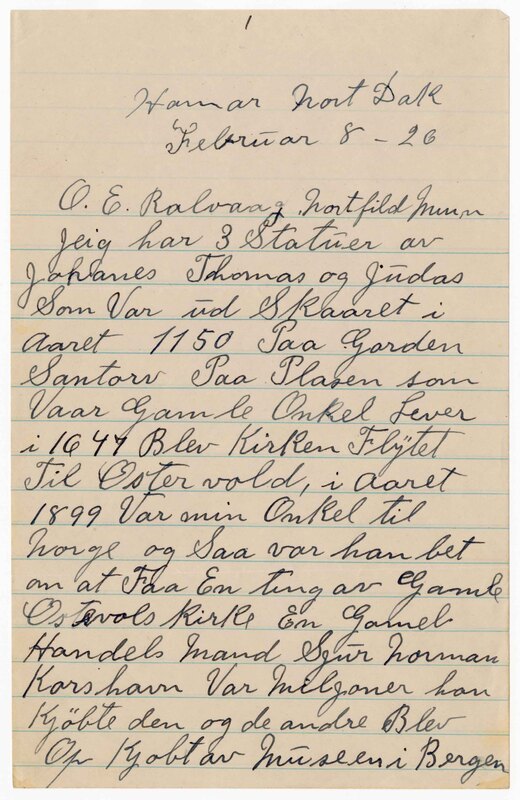 1
Hamar Nort Dak
Februar 8 - 26
O. E. Ralvaag Nortfild Minn
Jeig har 3 Statuer av
Johanes Thomas og Judas
Som Var ud Skaaret i
Aaret 1150 Paa Gorden
Santorv Paa Plasen som
Vaar Gamle Onkel Lever
i 1644 Blev Kirken Flÿtet
Til Oster vold, i Aaret
1899 Var min Onkel til
Norge og Saa var han bet
om at Faa En ting av Gamle
Ostevols Kirke En Gamel
Handels Mand Sjur Norman
Korshavn Var Miljoner han
Kjöbte den og de andre Blev
Op Kjobt av Museen i Bergen